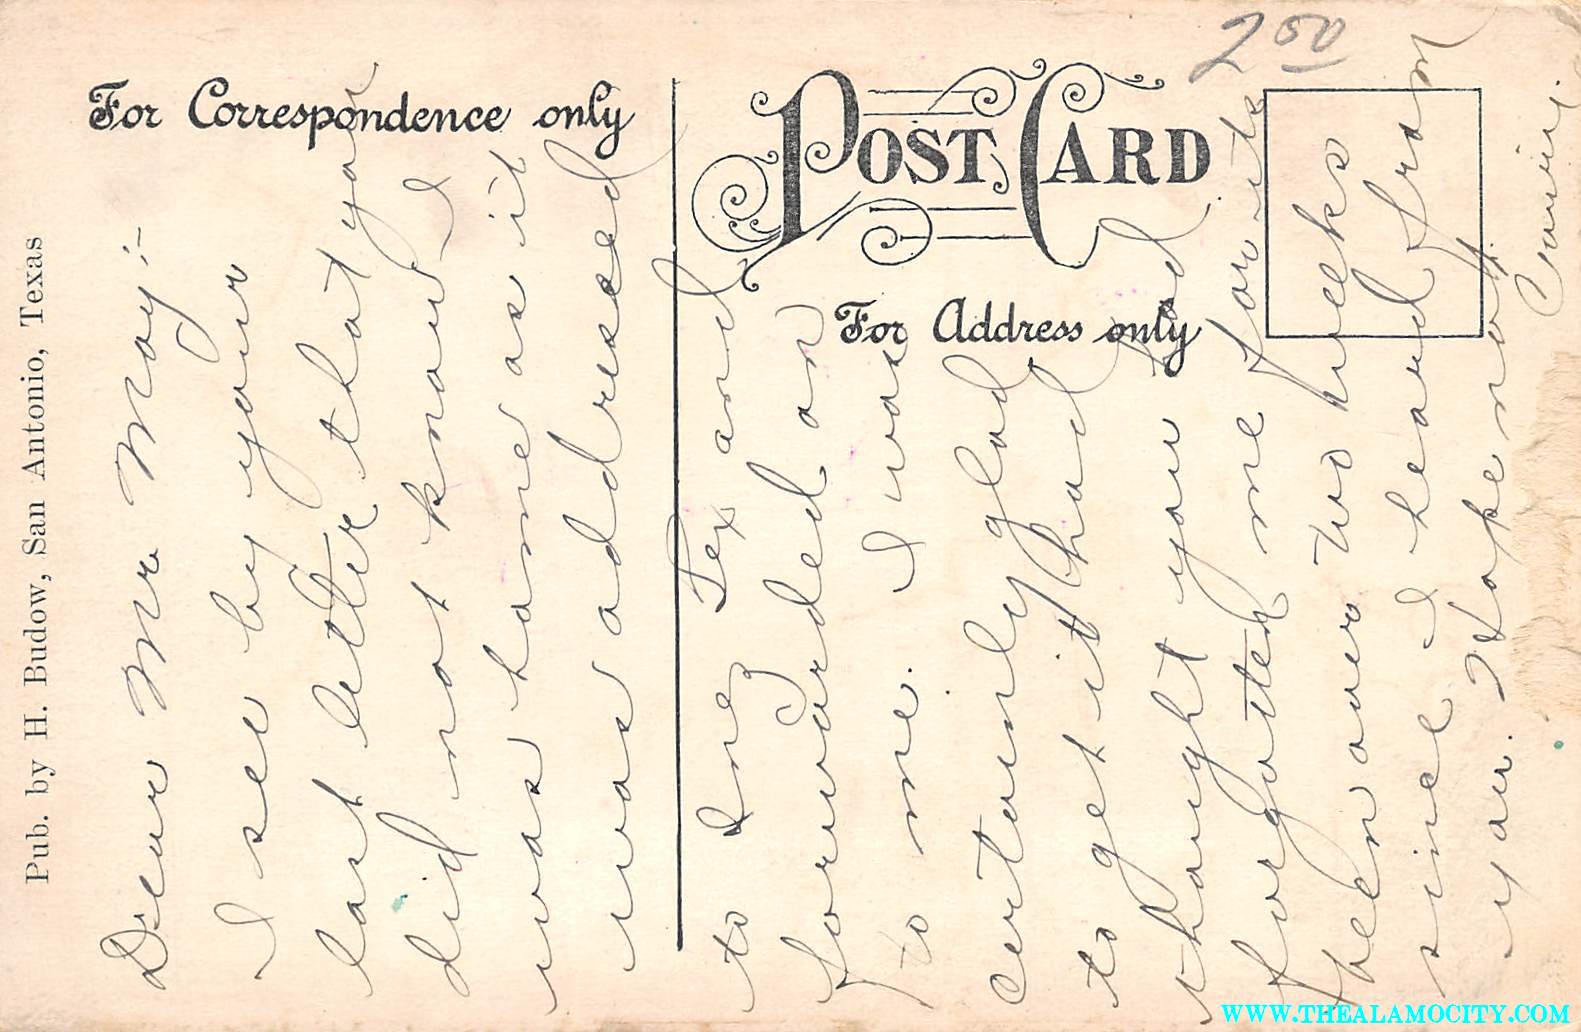 2 50
For Correspondence only
POST CARD
For Address only
Pub. by H. Budow, San Antonio, Texas
Dear Mr May:-
I see by your
last letter that you
did not know I
was home as it
was addressed
to Inez Tex and
forwarded on
to me. I was
certainly glad
to get it had
thought you had
forgotten me for its
been over two weeks
since I heard from
you. Hope not.
WWW.THEALAMOCITY.COM